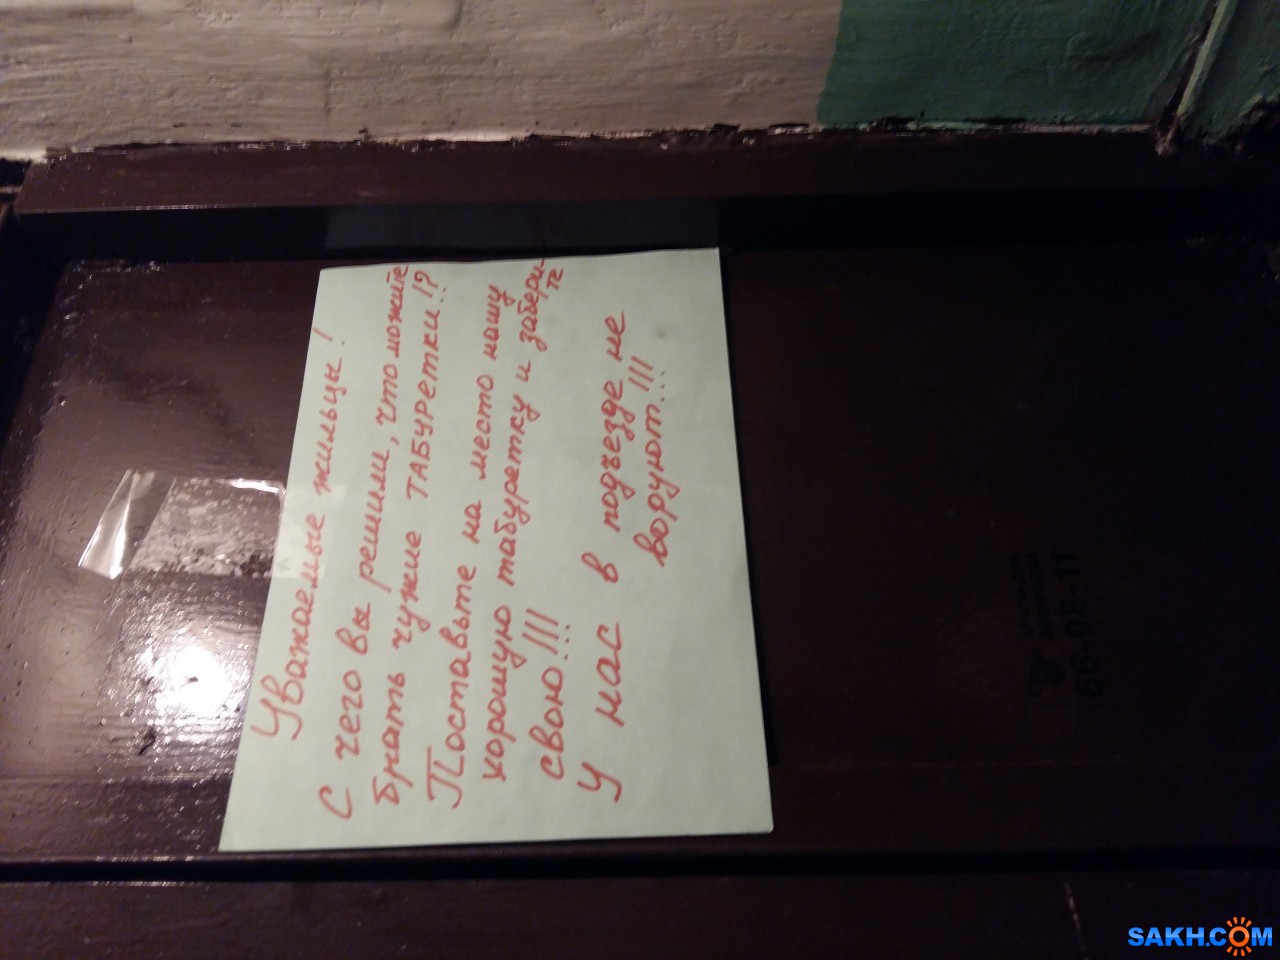 Уважаемые жильцы!
С чего вы решили, что можите
брать чужие ТАБУРЕТКИ!?
Поставьте на место нашу
хорошую табуретку и забери-
те
свою!!!
У нас в подъезде не
воруют!!!
66-08-11
SAKH.COM